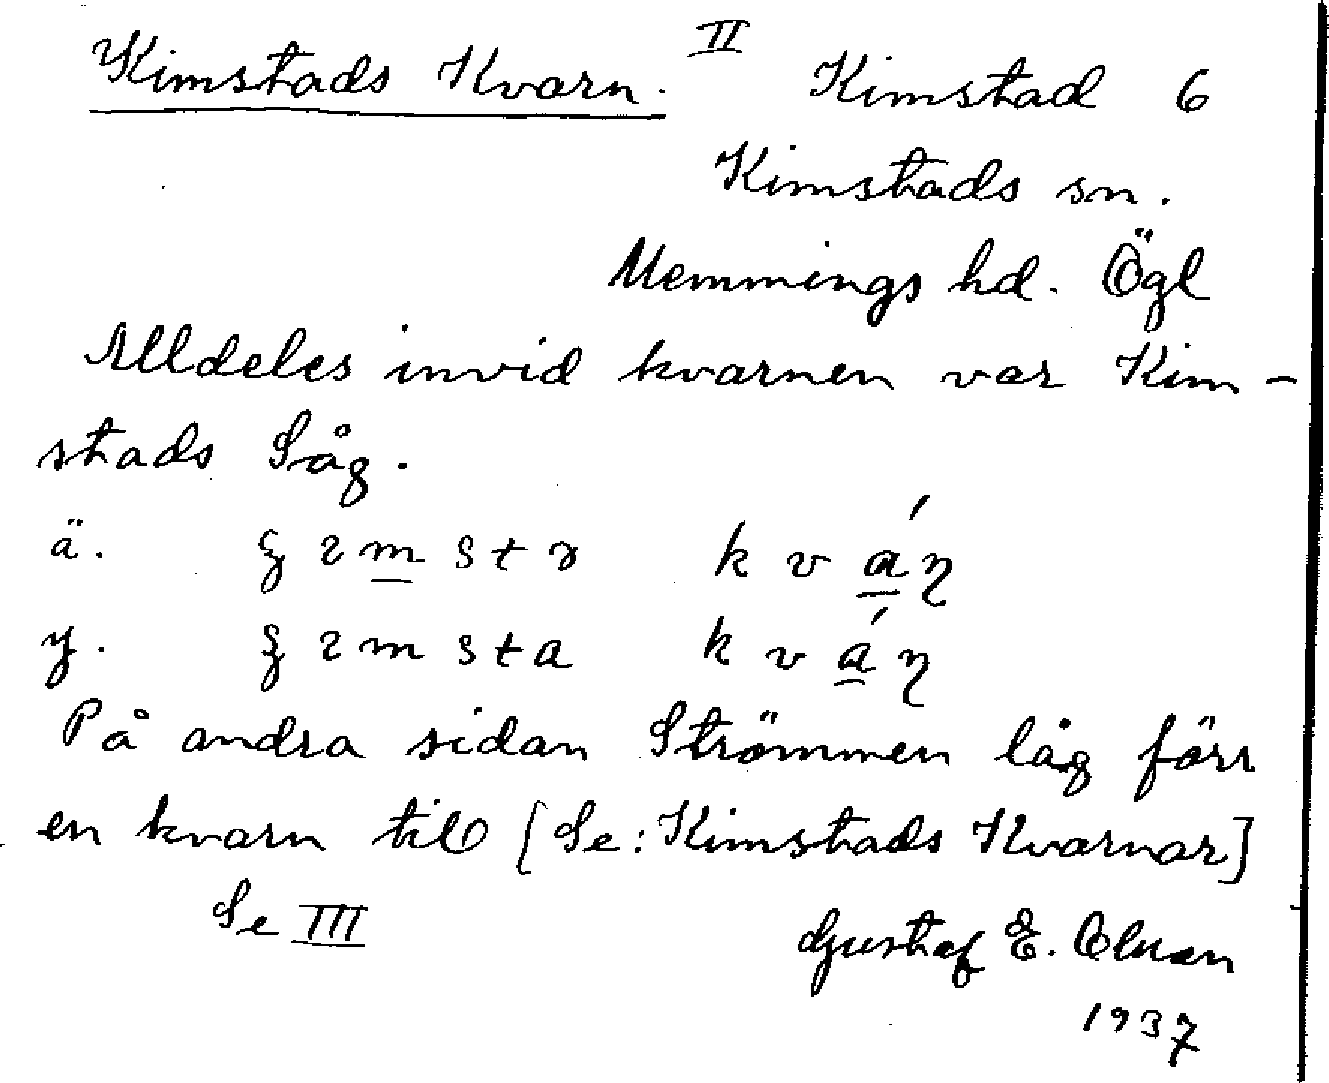 Kimstads Kvarn. II Kimstad 6
Kimstads sn.
Memmings hd. Ögl
Alldeles invid kvarnen var Kim-
stads Såg.
ä.
y.
På andra sidan Strömmen låg förr
en kvarn till [Se: Kimstads Kvarnar]
Se III
Gustaf E. Olsson
1937